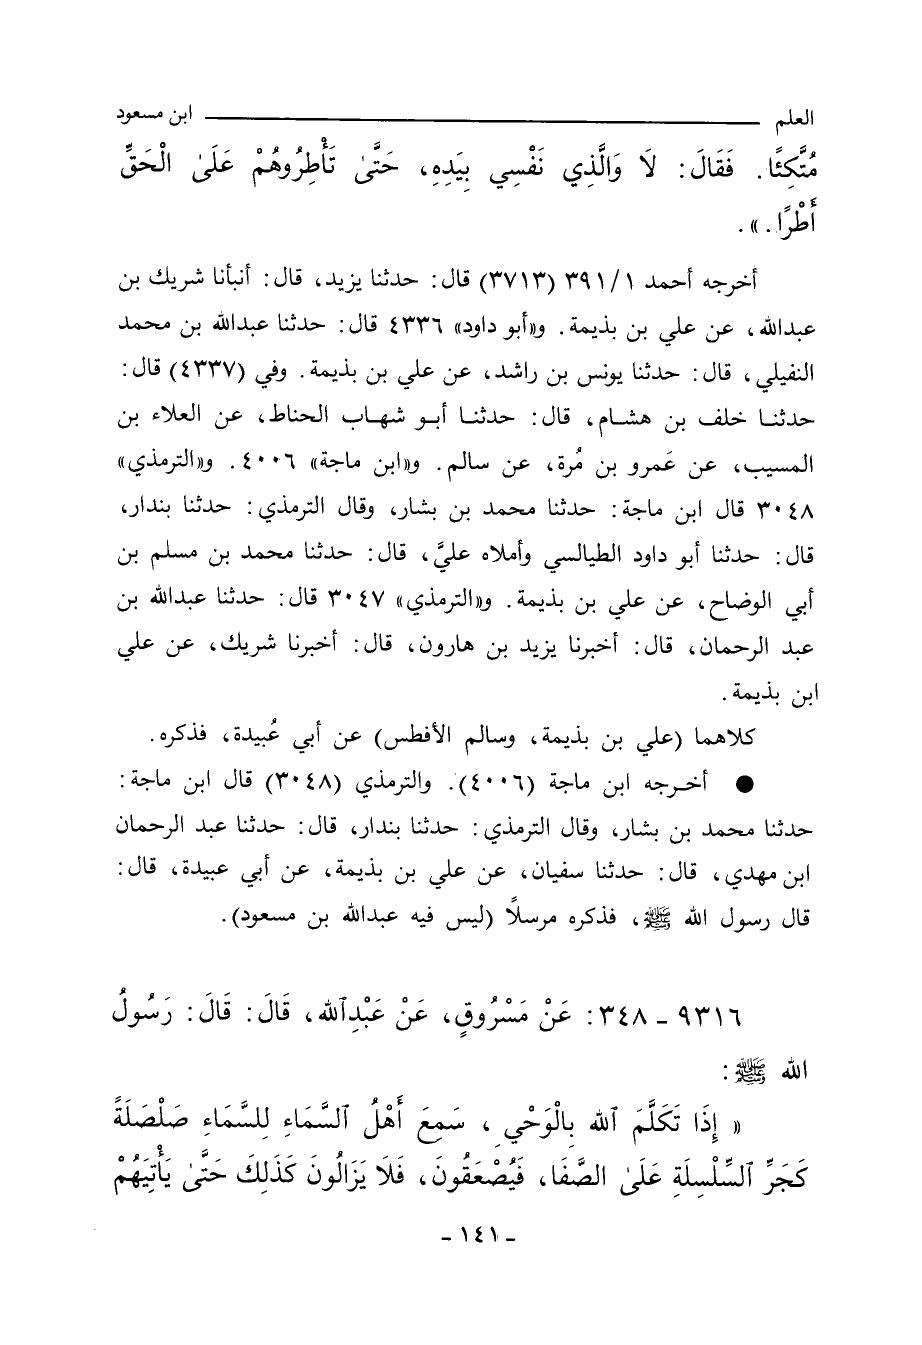 العلم ابن مسعود
مُتَّكِئًا. فَقَالَ: لَا وَالَّذِي نَفْسِي بِيَدِهِ، حَتَّىٰ تَأْطِرُوهُمْ عَلَىٰ الْحَقِّ
أَطْرًا.».
أخرجه أحمد ١/ ٣٩١ (٣٧١٣) قال: حدثنا يزيد، قال: أنبأنا شريك بن
عبدالله، عن علي بن بذيمة. و«أبو داود» ٤٣٣٦ قال: حدثنا عبدالله بن محمد
النفيلي، قال: حدثنا يونس بن راشد، عن علي بن بذيمة. وفي (٤٣٣٧) قال:
حدثنا خلف بن هشام، قال: حدثنا أبو شهاب الحناط، عن العلاء بن
المسيب، عن عَمرو بن مُرة، عن سالم. و«ابن ماجة» ٤٠٠٦. و«الترمذي»
٣٠٤٨ قال ابن ماجة: حدثنا محمد بن بشار، وقال الترمذي: حدثنا بندار،
قال: حدثنا أبو داود الطيالسي وأملاه عليَّ، قال: حدثنا محمد بن مسلم بن
أبي الوضاح، عن علي بن بذيمة. و«الترمذي» ٣٠٤٧ قال: حدثنا عبدالله بن
عبد الرحمان، قال: أخبرنا يزيد بن هارون، قال: أخبرنا شريك، عن علي
ابن بذيمة.
كلاهما (علي بن بذيمة، وسالم الأفطس) عن أبي عُبيدة، فذكره.
● أخرجه ابن ماجة (٤٠٠٦). والترمذي (٣٠٤٨) قال ابن ماجة:
حدثنا محمد بن بشار، وقال الترمذي: حدثنا بندار، قال: حدثنا عبد الرحمان
ابن مهدي، قال: حدثنا سفيان، عن علي بن بذيمة، عن أبي عبيدة، قال:
قال رسول الله ﷺ، فذكره مرسلاً (ليس فيه عبدالله بن مسعود).
٩٣١٦ - ٣٤٨: عَنْ مَسْرُوقٍ، عَنْ عَبْدِٱلله، قَالَ: قَالَ: رَسُولُ
الله ﷺ:
« إِذَا تَكَلَّمَ ٱلله بِالْوَحْيِ، سَمِعَ أَهْلُ ٱلسَّمَاءِ لِلسَّمَاءِ صَلْصَلَةً
كَجَرِّ ٱلسِّلْسِلَةِ عَلَىٰ الصَّفَا، فَيُصْعَقُونَ، فَلَا يَزَالُونَ كَذَلِكَ حَتَّىٰ يَأْتِيَهُمْ
- ١٤١ -